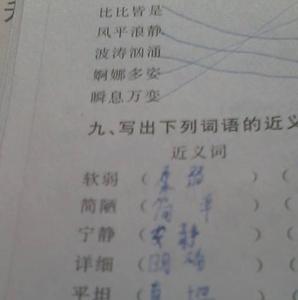 比比皆是
风平浪静
波涛汹涌
婀娜多姿
瞬息万变
九、写出下列词语的近义
近义词
软弱（柔弱）（
简陋（简单）（
宁静（安静）（
详细（明确）（
平坦（